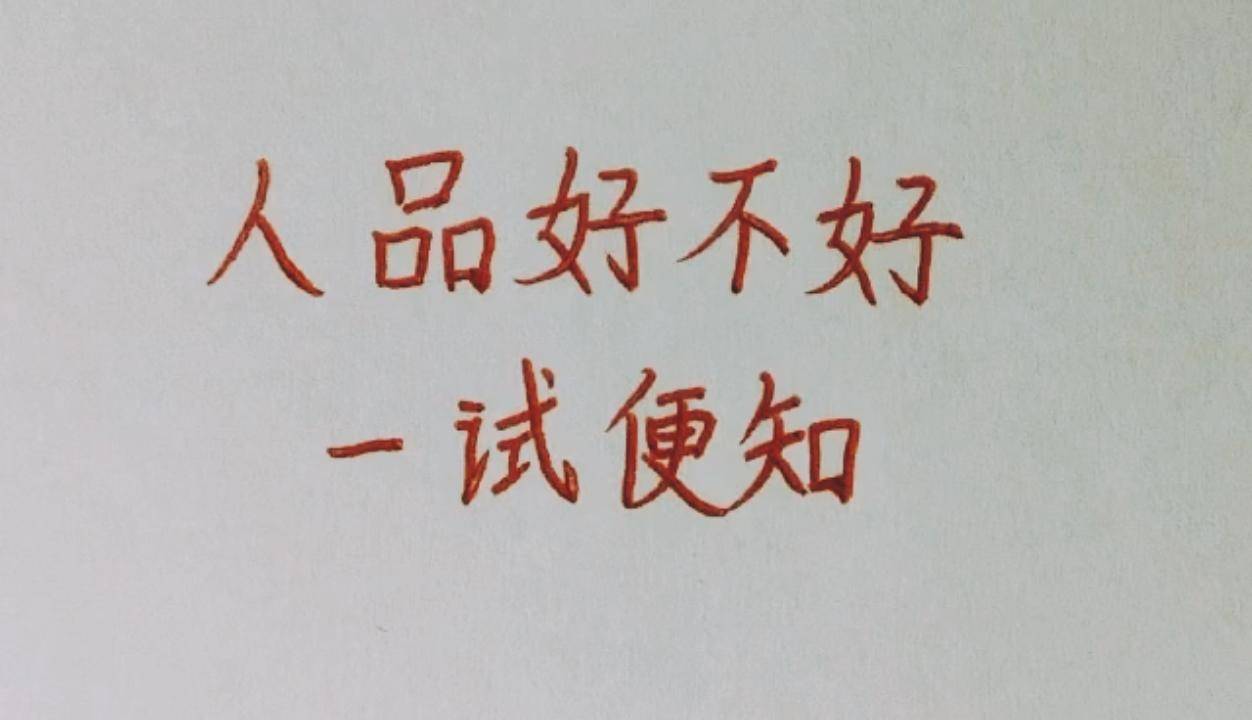 人品好不好
一试便知